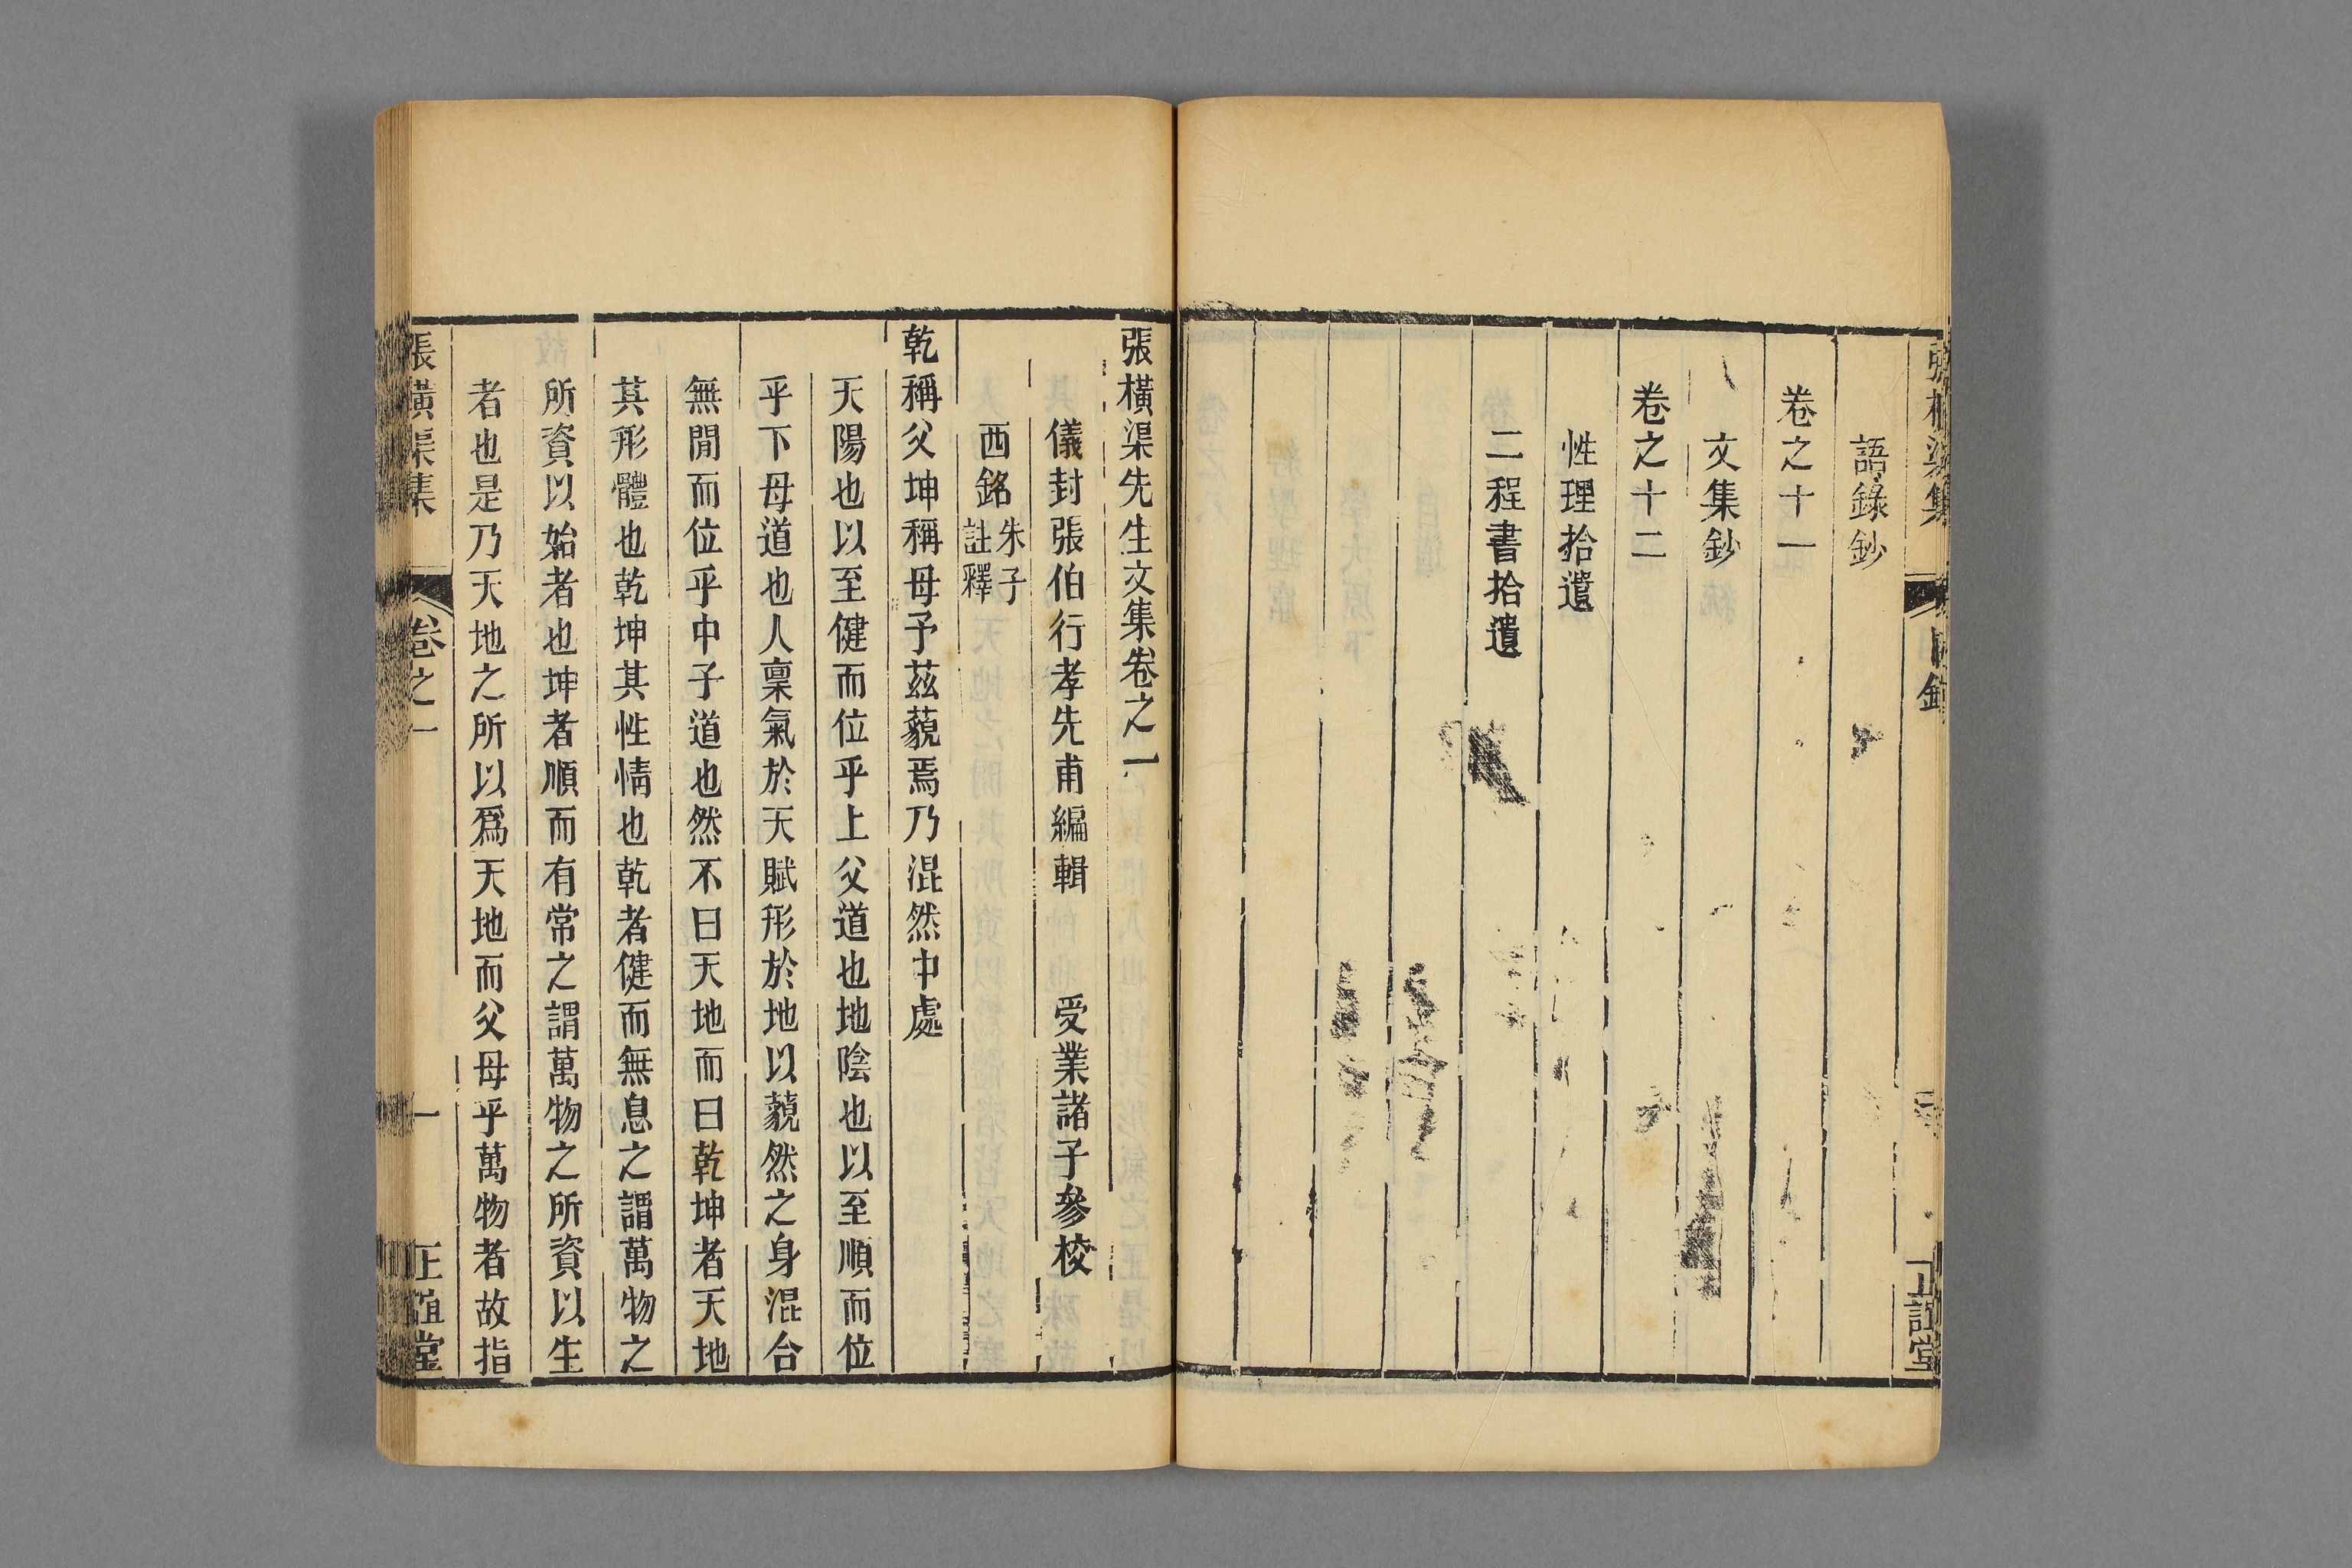 張橫渠集
目錄
正誼堂
語錄鈔
卷之十一
文集鈔
卷之十二
性理拾遺
二程書拾遺
張橫渠先生文集卷之一
儀封張伯行孝先甫編輯　受業諸子參校
西銘朱子註釋
乾稱父坤稱母予茲藐焉乃混然中處
天陽也以至健而位乎上父道也地陰也以至順而位
乎下母道也人稟氣於天賦形於地以藐然之身混合
無閒而位乎中子道也然不曰天地而曰乾坤者天地
其形體也乾坤其性情也乾者健而無息之謂萬物之
所資以始者也坤者順而有常之謂萬物之所資以生
者也是乃天地之所以爲天地而父母乎萬物者故指
張橫渠集
卷之一
一
正誼堂